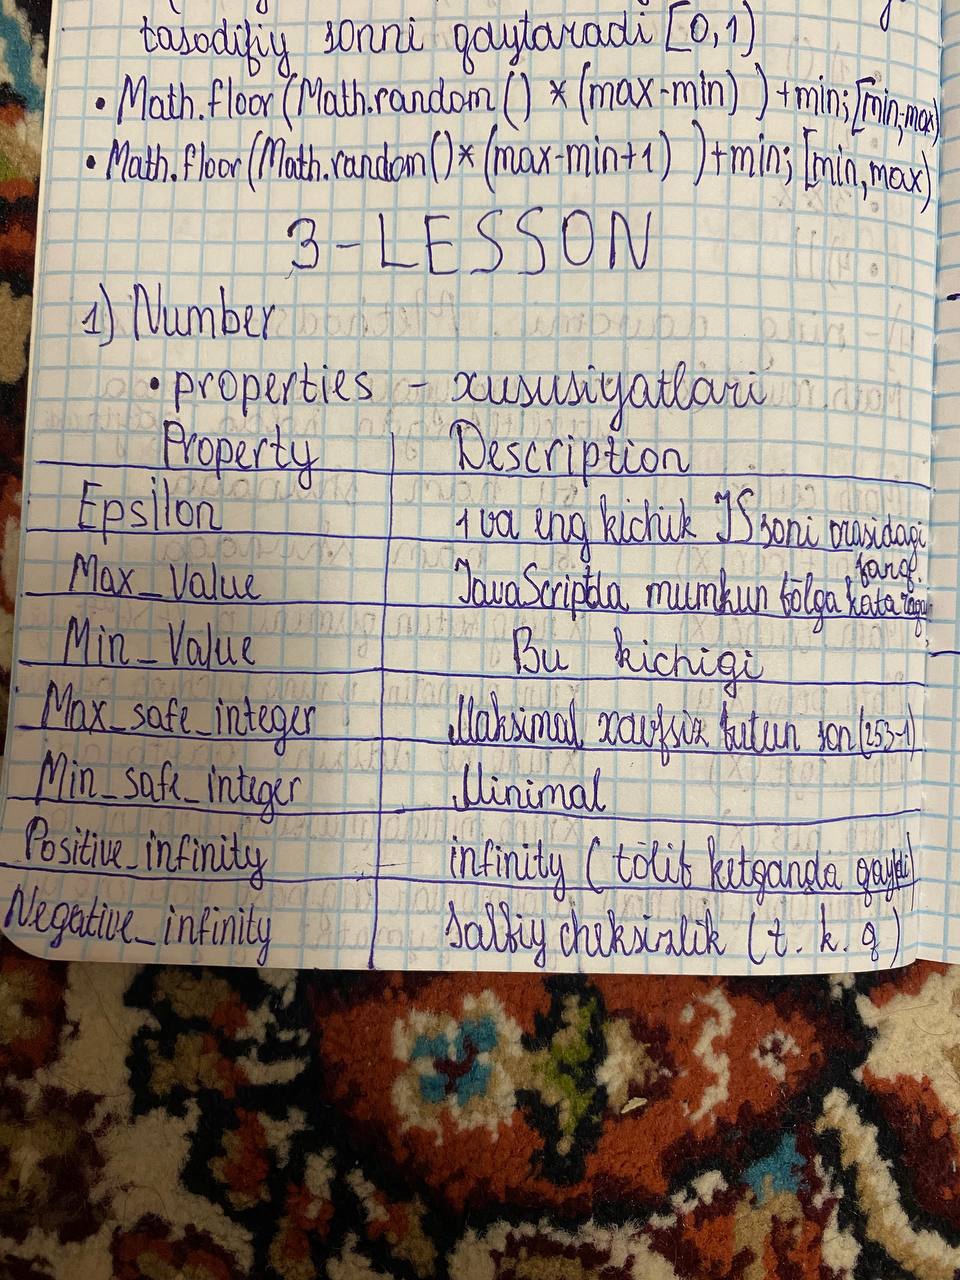 tasodifiy sonni qaytaradi [0,1)
• Math.floor(Math.random() * (max-min)) + min; [min,max)
• Math.floor(Math.random()*(max-min+1))+min; [min,max)
3-LESSON
1) Number
• properties - xususiyatlari
Property Description
Epsilon 1 va eng kichik JS soni orasidagi farq.
Max_Value JavaScriptda mumkun bolga kata
Min_Value Bu kichigi
Max_safe_integer Maksimal xavfsiz butun son (253-1)
Min_safe_integer Minimal
Positive_infinity infinity (tolib ketganda
Negative_infinity Salbiy cheksizlik (t. k. q)